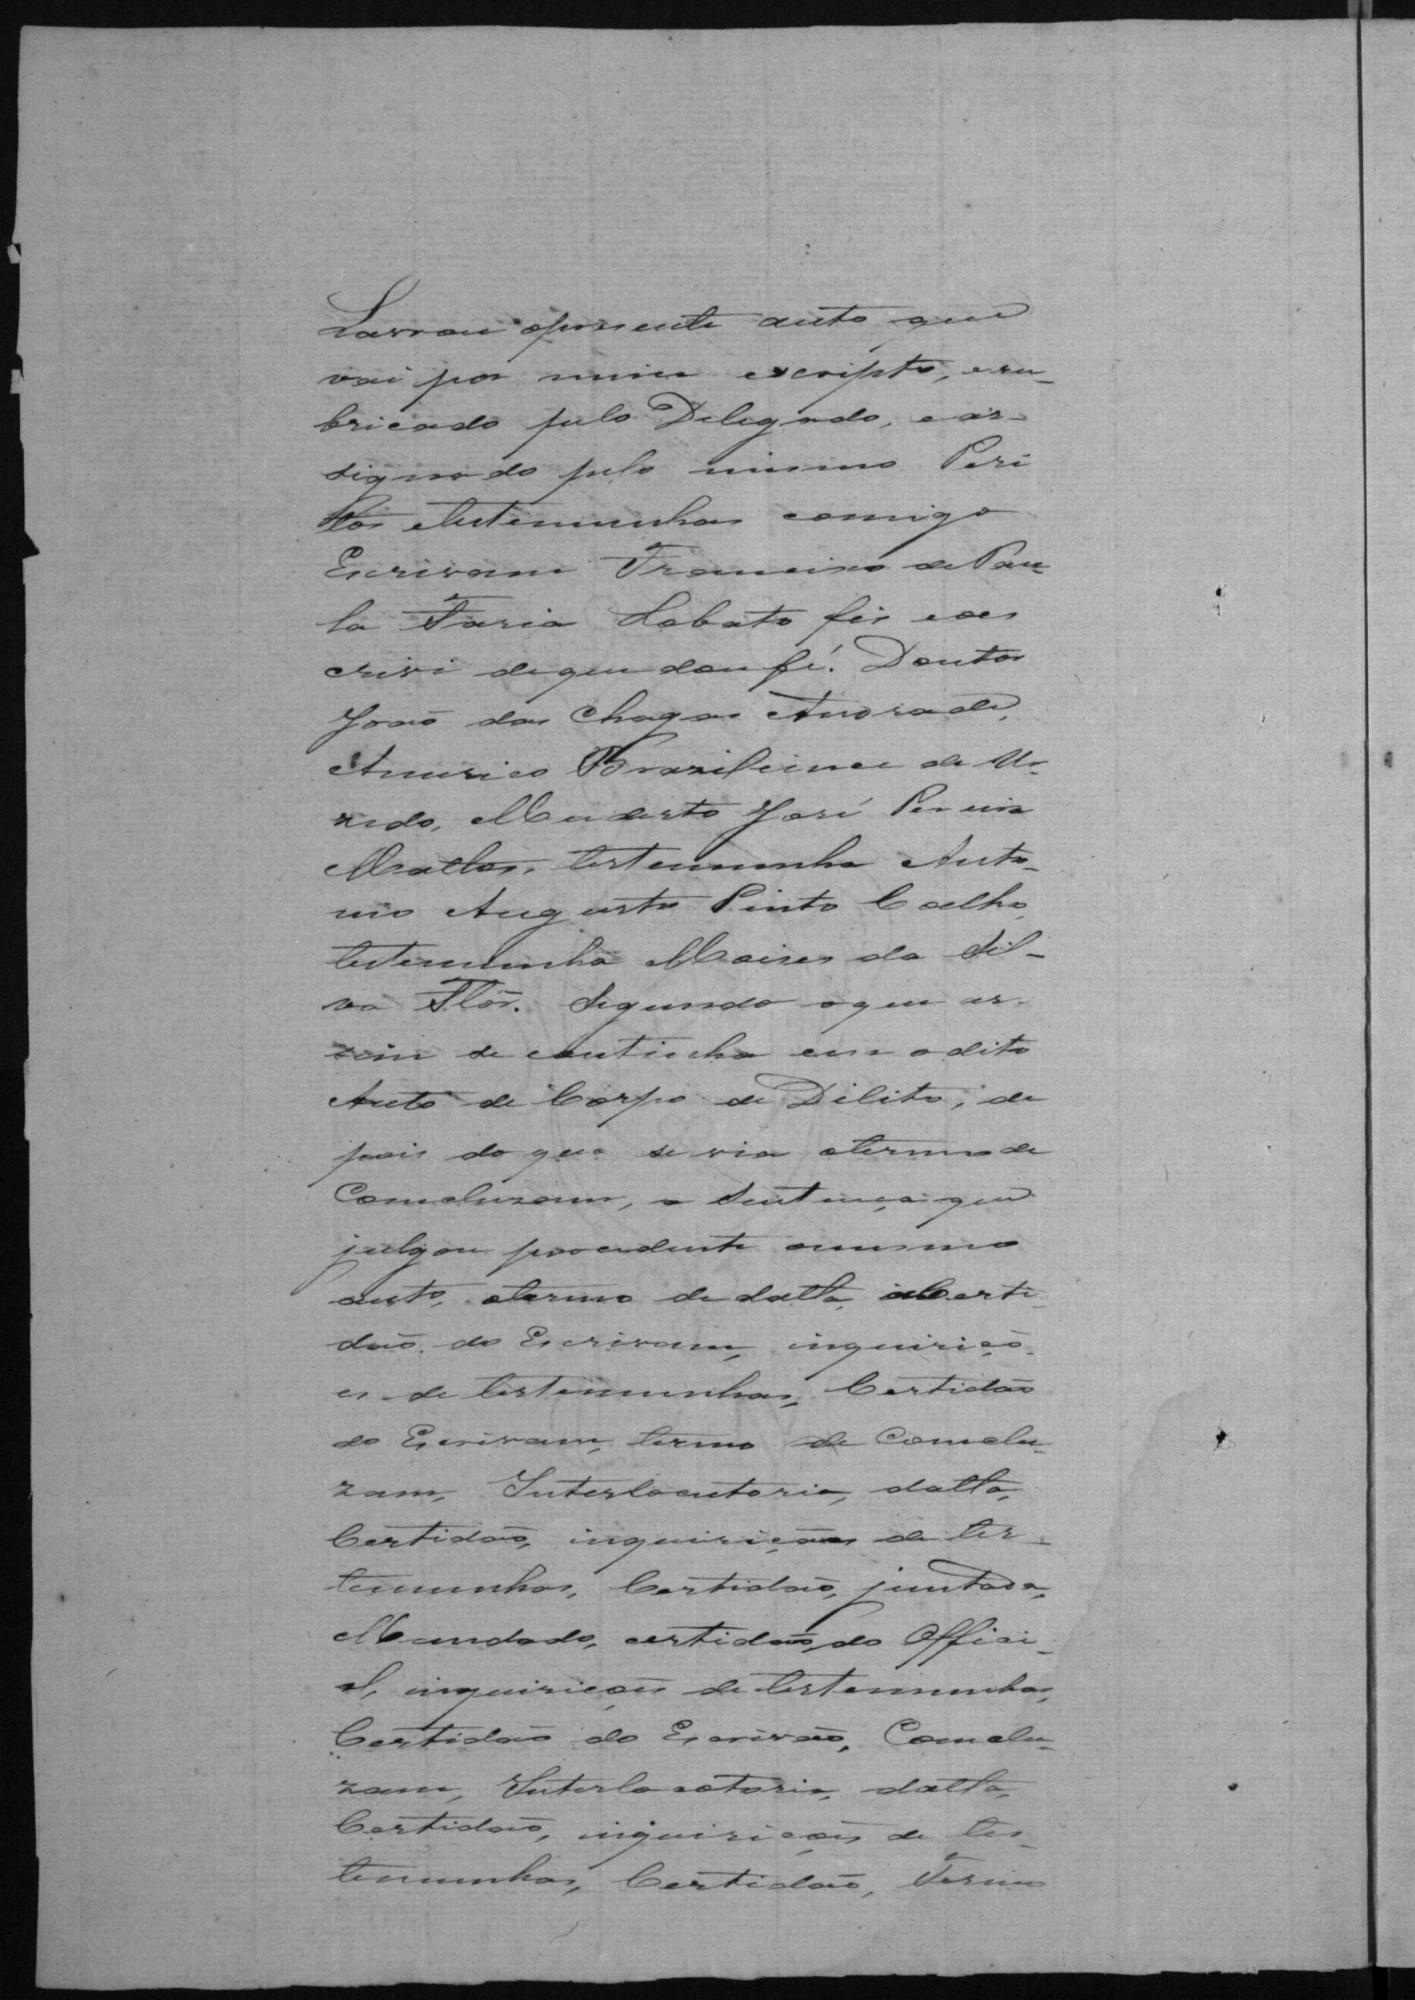 Lavrou opresente auto que
vai por mim escripto, e ru-
bricado pelo Delegado, e as-
signado pelo mesmo Peri
tos etestemunhas comigo
Escrivam Francisco de Pau-
la Faria Lobato fis e oes
crivi dequedoufé. Doutor
João das Chagas Andrade,
Americo Braziliense de
zedo, Modesto José Pereira
Mattos, testemunha Anto-
nio Augusto Pinto Coelho,
testemunha Moises da Sil-
va Flôr. Segundo oque as-
sim se continha em o dito
Auto de Corpo de Dilito; de
pois do que se via otermo de
Comcluzam, a Sentença que
julgou procedente omesmo
auto, otermo de datta, aCerti-
dão do Escrivam, inquiriçõ-
es de testemunhas, Certidão
do Escrivam, termo de Comclu-
zam, Interlocutoria, datta,
Certidão, inquirições de tes-
temunhas, Certidão, juntada,
Mandado, certidão, do Offici-
al, inquirições de testemunhas,
Certidão do Escrivão, Comclu-
zam, Interlocotoria, datta,
Certidão, inquirições de tes-
temunhas, Certidão, Termo